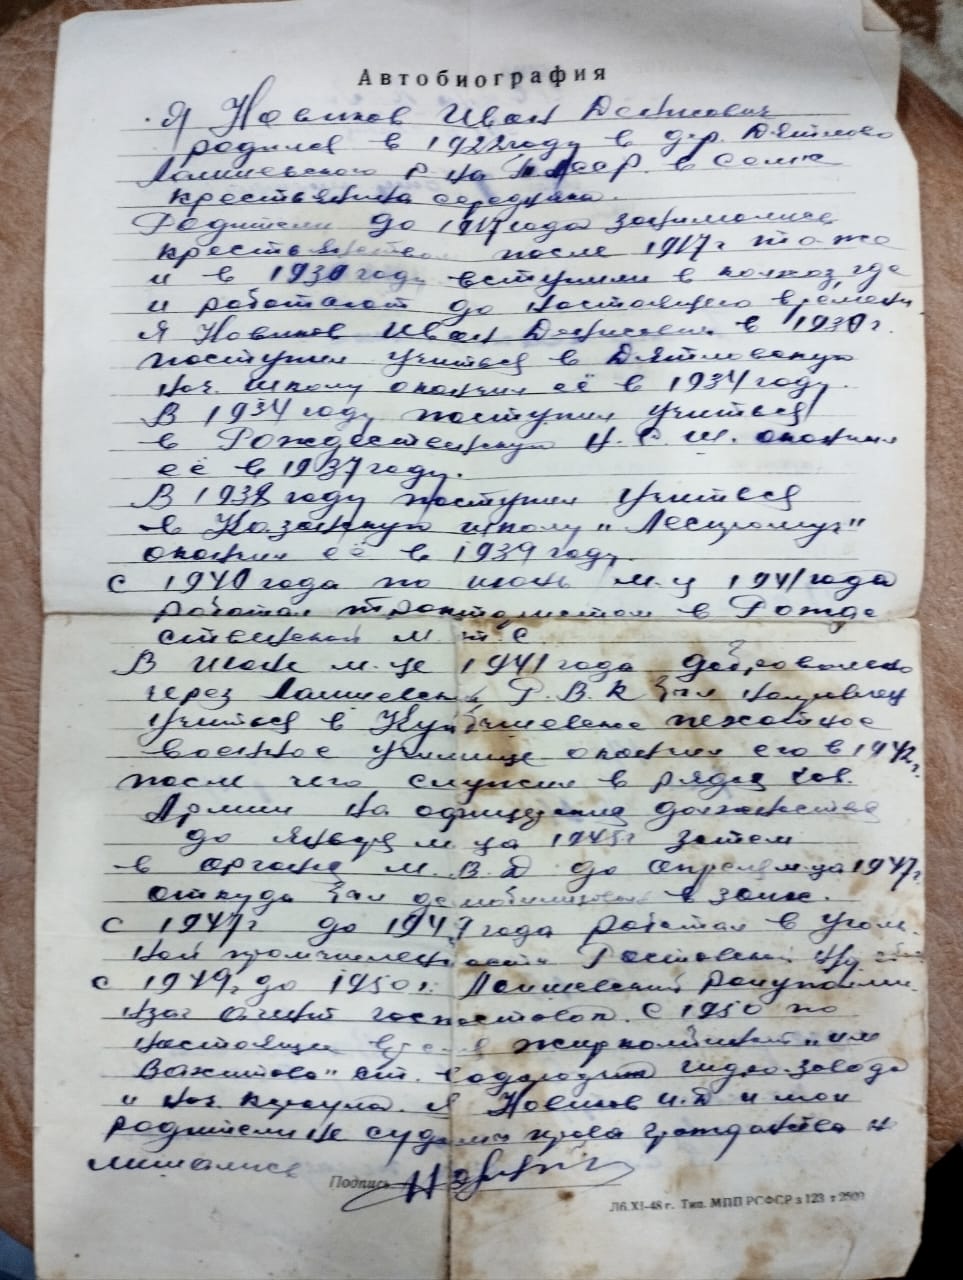 Автобиография
Я Новиков Иван Денисович
родился в 1922 году в дер. Дятлово
Лаишевского р-на ТАССР. в семье
крестьянина середняка.
Родители до 1917 года занимались
крестьянством после 1917 г тоже
и в 1930 году вступили в колхоз, где
и работают до настоящего времени
Я Новиков Иван Денисович в 1930 г.
поступил учиться в Дятловскую
нач. школу окончил её в 1934 году.
В 1934 году поступил учиться
в Рождественскую Н.С.Ш. окончил
её в 1937 году.
В 1938 году поступил учиться
в Казанскую школу "
окончил её в 1939 году.
с 1940 года по июнь м-ц 1941 года
работал в Рожде
ственской М.Т.С
В июне м-це 1941 года добровольно
через Лаишевский Р.В.К был
учиться в Куйбышевское пехотное
военное училище окончил его в 1942 г.
после чего служил в рядах Сов.
Армии на офицерских должностях
до января м-ца 1945 г затем
в органах М.В.Д до апреля м-ца 1947 г.
откуда был демобилизован в запас.
с 1947 г до 1949 года работал в уголь
ной промышленности Ростовской
с 1949 г. до 1950 г. Лаишевский
агент С 1950 по
настоящее время жиркомбинат "им
Вахитова" гидрозавода
и нач. караула. Я Новиков И.Д и мои
родители не судились права гражданства н
лишались
Подпись
Л6.XI-48 г. Тип. МПП РСФСР з 123 т 2500